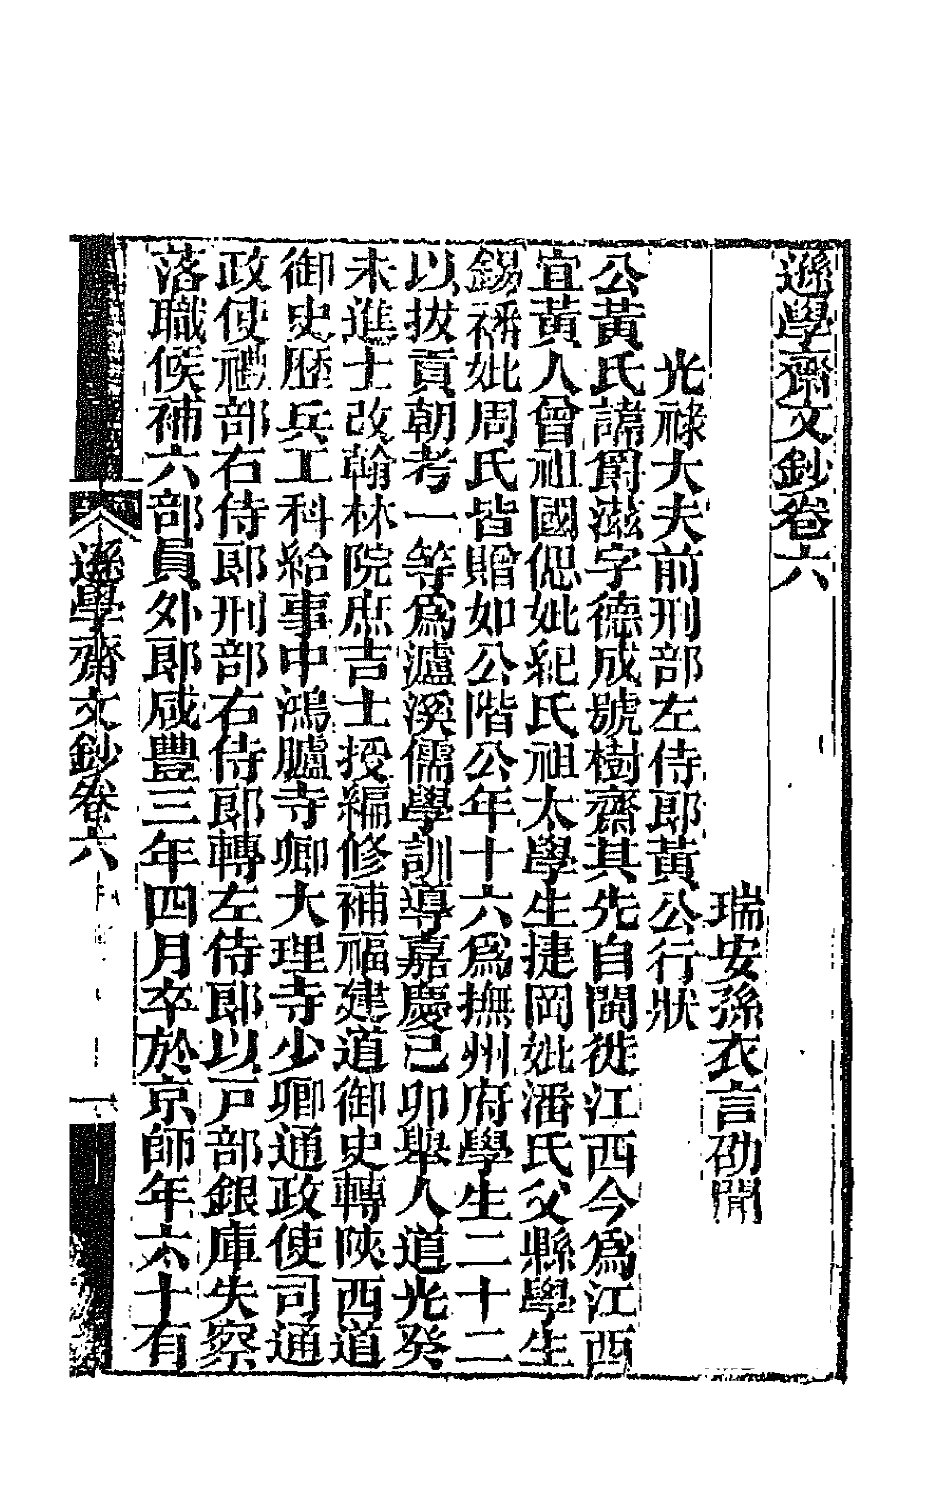 遜學齋文鈔卷六
瑞安孫衣言劭聞
光祿大夫前刑部左侍郎黃公行狀
公黃氏諱爵滋字德成號樹齋其先自閩徙江西今爲江西
宜黃人曾祖國偲妣紀氏祖太學生捷岡妣潘氏父縣學生
錫禠妣周氏皆贈如公階公年十六爲撫州府學生二十二
以拔貢朝考一等爲瀘溪儒學訓導嘉慶己卯舉人道光癸
未進士改翰林院庶吉士授編修補福建道御史轉陝西道
御史歷兵工科給事中鴻臚寺卿大理寺少卿通政使司通
政使禮部右侍郎刑部右侍郎轉左侍郎以戸部銀庫失察
落職候補六部員外郎咸豐三年四月卒於京師年六十有
遜學齋文鈔卷六
一